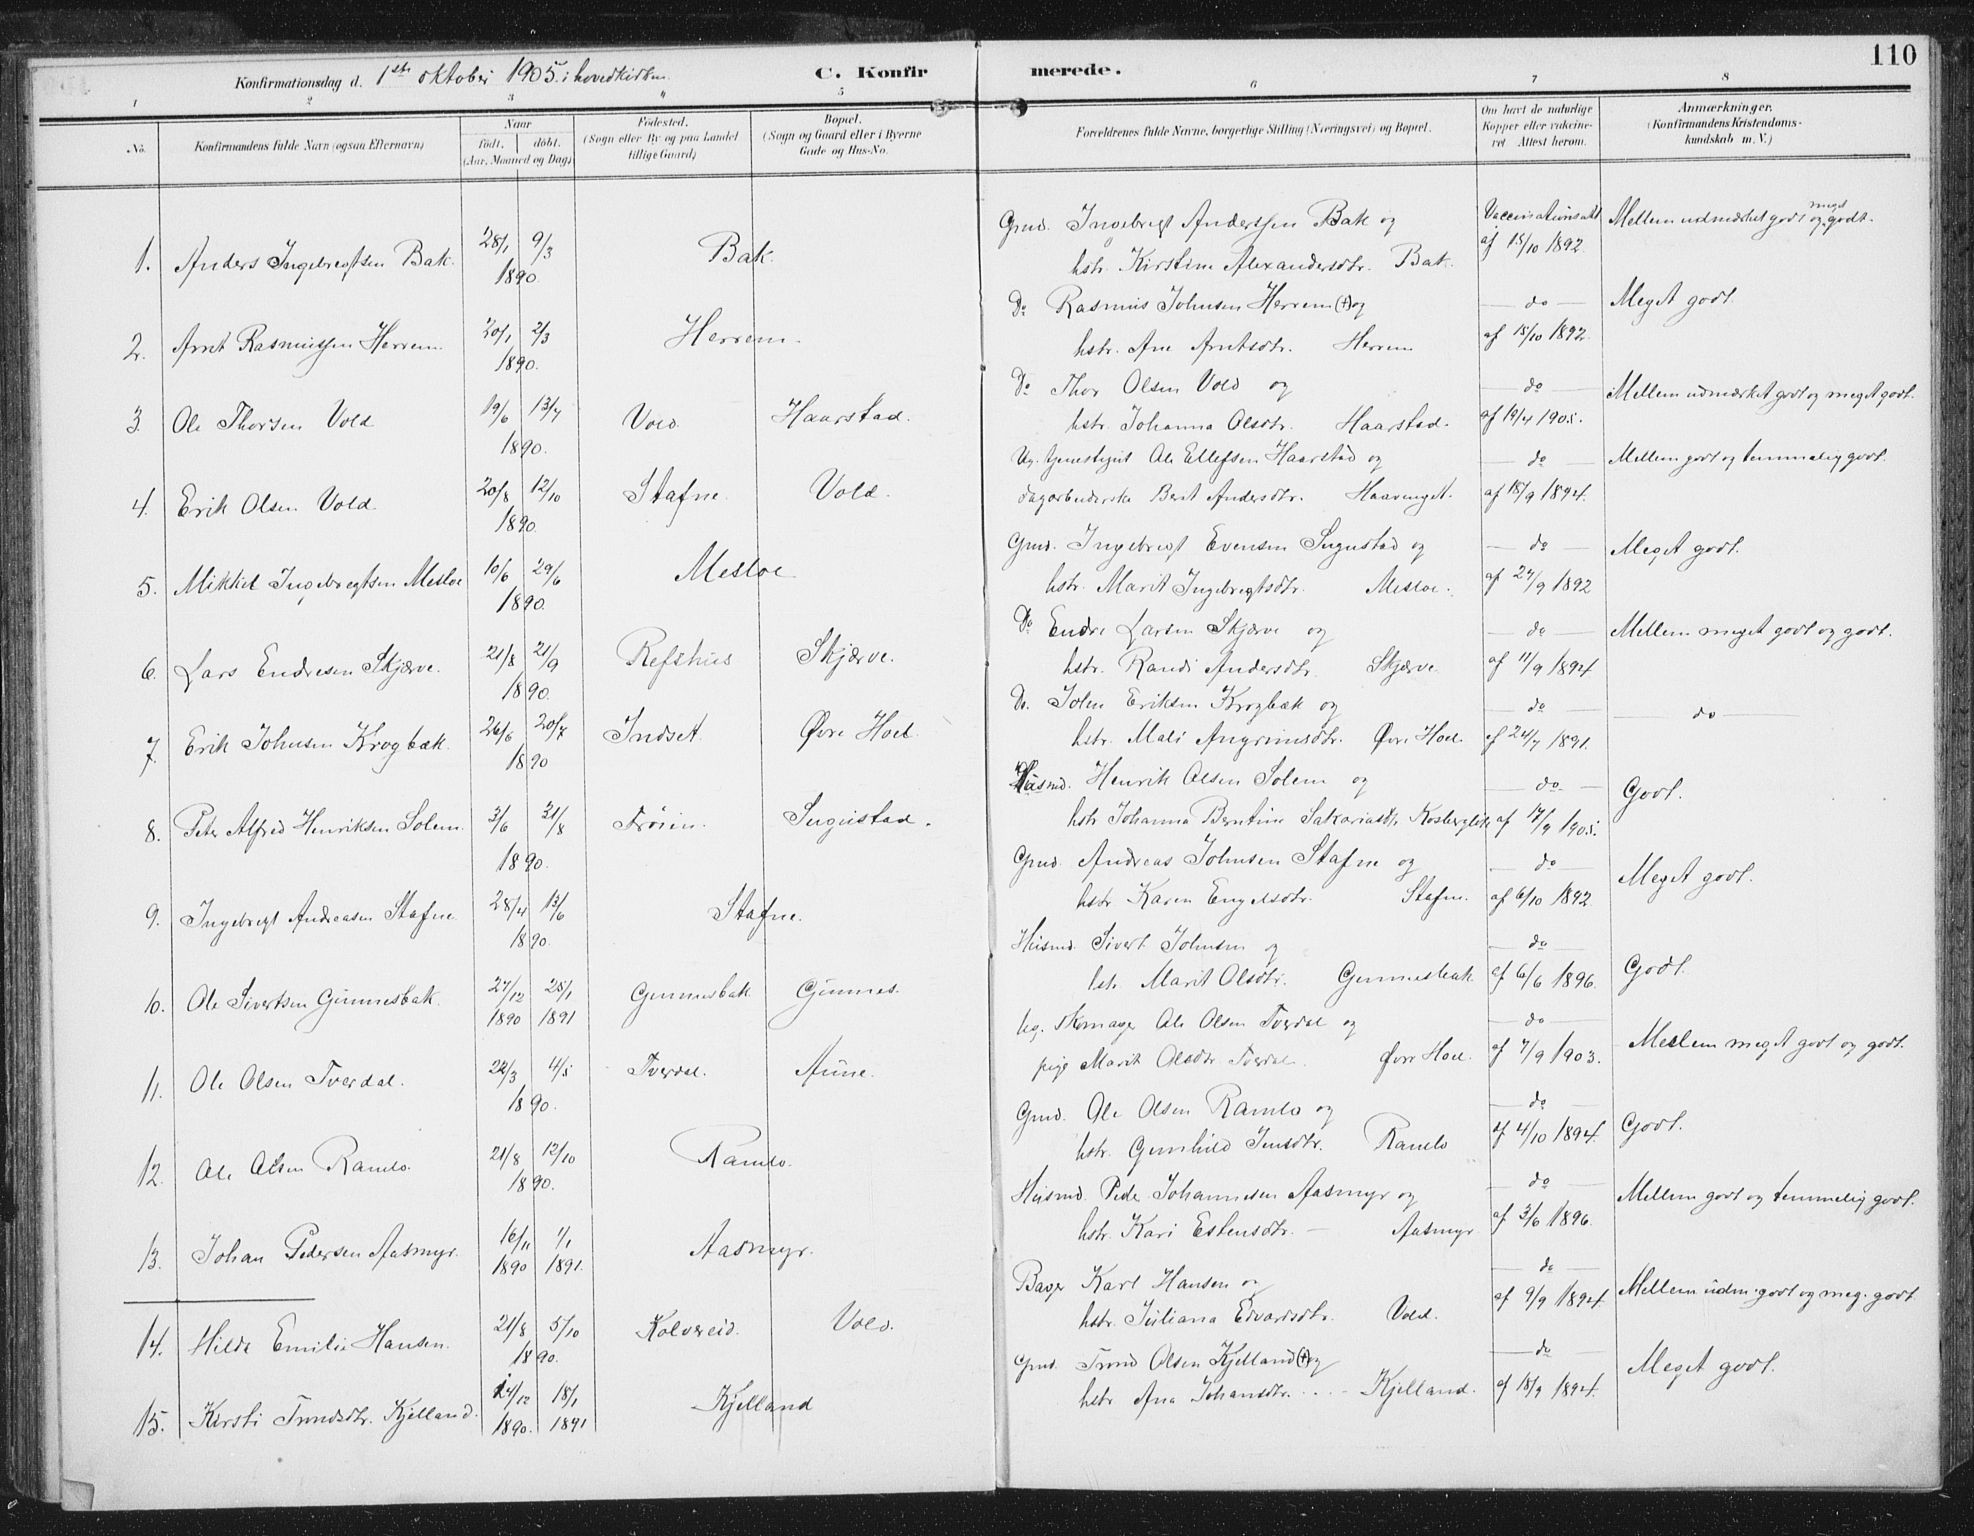 110
Konfirmationsdag d. 1ste oktober 1905 i hovedkirken.
C. Konfirmerede.
1 2 3 4 5 6 7 8
No.
Konfirmandens fulde Navn (ogsaa Efternavn)
Naar
født. døbt.
(Aar, Maaned og Dag)
Fødested.
(Sogn eller By og paa Landet
tillige Gaard)
Bopæl.
(Sogn og Gaard eller i Byerne
Gade og Hus-No.
Forældrenes fulde Navne, borgerlige Stilling (Næringsvei) og Bopæl.
Om havt de naturlige
Kopper eller vakcine-
ret. Attest herom.
Anmærkninger.
(Konfirmandens Kristendoms-
kundskab m. V.)
1. Anders Ingebregtsen Bak. 28/1 9/3 1890 Bak.
Gmd. Ingebregt Anderssen Bak og
hstr. Kirstine Alexandersdtr. Bak.
Vaccinationsatt af 15/10 1892. Mellem udmærket godt og meget godt.
2. Arnt Rasmussen Herrem. 20/1 2/3 1890. Herrem.
Do Rasmus Johnsen Herrem (+) og
hstr. Ane Arntsdtr. Herrem
do af 15/10 1892. Meget godt.
3. Ole Thorsen Vold 19/6 13/7 1890. Vold. Haarstad.
Do Thor Olsen Vold og
hstr. Johanna Olsdtr. Haarstad.
do af 19/4 1905. Mellem udmærket godt og meget godt.
4. Erik Olsen Vold. 20/8 12/10 1890 Stafne. Vold.
Ug. tjenestegut Ole Ellefsen Haarstad og
dagarbeiderske Berit Andersdtr. Haavenget.
do af 18/9 1894. Mellem godt og temmelig godt.
5. Mikkel Ingebregtsen Mesloe 10/6 29/6 1890. Mesloe
Gmd. Ingebregt Evensen Sugustad og
hstr. Marit Ingebregtsdtr. Mesloe.
do af 27/9 1892 Meget godt.
6. Lars Endresen Skjærve. 21/8 21/9 1890. Refshus Skjærve.
Do Endre Larsen Skjærve og
hstr. Randi Andersdtr. Skjærve.
do af 11/9 1894 Mellem meget godt og godt.
7. Erik Johnsen Krogbæk. 26/6 20/7 1890 Indset. Øvre Hoel.
Do. John Eriksen Krogbæk og
hstr. Mali Angrimsdtr. Øvre Hoel.
do af 24/7 1891. do
8. Peter Alfred Henriksen Solem. 3/6 31/8 1890. Trøien. Sugustad.
Husmd. Henrik Olsen Solem og
hstr Johanna Berntine Sakariasdtr.
do af 17/9 1905. Godt.
9. Ingebregt Andreasen Stafne 28/4 13/6 1890. Stafne.
Gmd. Andreas Johnsen Stafne og
hstr Karen Engelsdtr. Stafne.
do af 6/10 1892. Meget godt.
10. Ole Sivertsen Gunnesbak. 27/12 1890 25/1 1891 Gunnesbak Gunnes.
Husmd. Sivert Johnsen og
hstr. Marit Olsdtr. Gunnesbak
do af 6/6 1896. Godt.
11. Ole Olsen Tverdal. 22/3 4/5 1890. Tverdal. Aune.
Ug. skomager Ole Olsen Tverdal og
pige Marit Olsdtr Tverdal. Øvre Hoel.
do af 7/9 1903. Mellem meget godt og godt.
12. Ole Olsen Ramlo. 21/8 12/10 1890. Ramlo.
Gmd. Ole Olsen Ramlo og
hstr. Gunhild Jensdtr. Ramlo
do af 4/10 1894. Godt.
13. Johan Pedersen Aasmyr. 16/11 1890 1/1 1891. Aasmyr.
Husmd. Peder Johannesen Aasmyr og
hstr. Kari Estensdtr. Aasmyr
do af 3/6 1896. Mellem godt og temmelig godt.
14. Hilda Emilie Hansen. 21/8 5/10 1890. Kolvereid. Vold.
Bager Karl Hansen og
hstr. Juliana Edvardsdtr. Vold.
do af 9/9 1894. Mellem udm. godt og meg. godt.
15. Kirsti Trondsdtr. Kjelland. 24/12 1890. 18/1 1891 Kjelland
Gmd. Trond Olsen Kjelland (+) og
hstr Ana Johansdtr. Kjelland.
do af 18/9 1894. Meget godt.